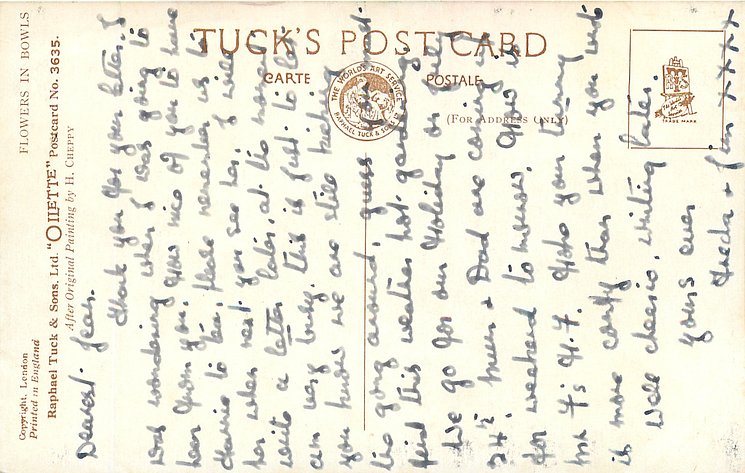 TUCK'S POST CARD
CARTE POSTALE
(FOR ADDRESS ONLY)
THE WORLD'S ART SERVICE
RAPHAEL TUCK & SONS LTD
TRADE MARK
FLOWERS IN BOWLS
Raphael Tuck & Sons, Ltd. "OILETTE" Postcard No. 3635.
After Original Painting by H. Cheppy
Copyright, London
Printed in England
Dearest
Thank you for your letter, I
was wondering when I was going to
hear from you. How nice of you to have
to tea, please remember us to
her when next you see her. I will
write a letter later, at the moment
am very busy, this is just to let
you know we are still kicking
the going around, guess
first this weather hot
We go for our Holiday on July
24th. Mum & Dad are coming up
for weekend to-morrow. How is
Mr F's H.F. Hope your tummy
is more comfy than when you wrote
Well cheerio, writing later.
Yours ever
Freda & Jim xxxx